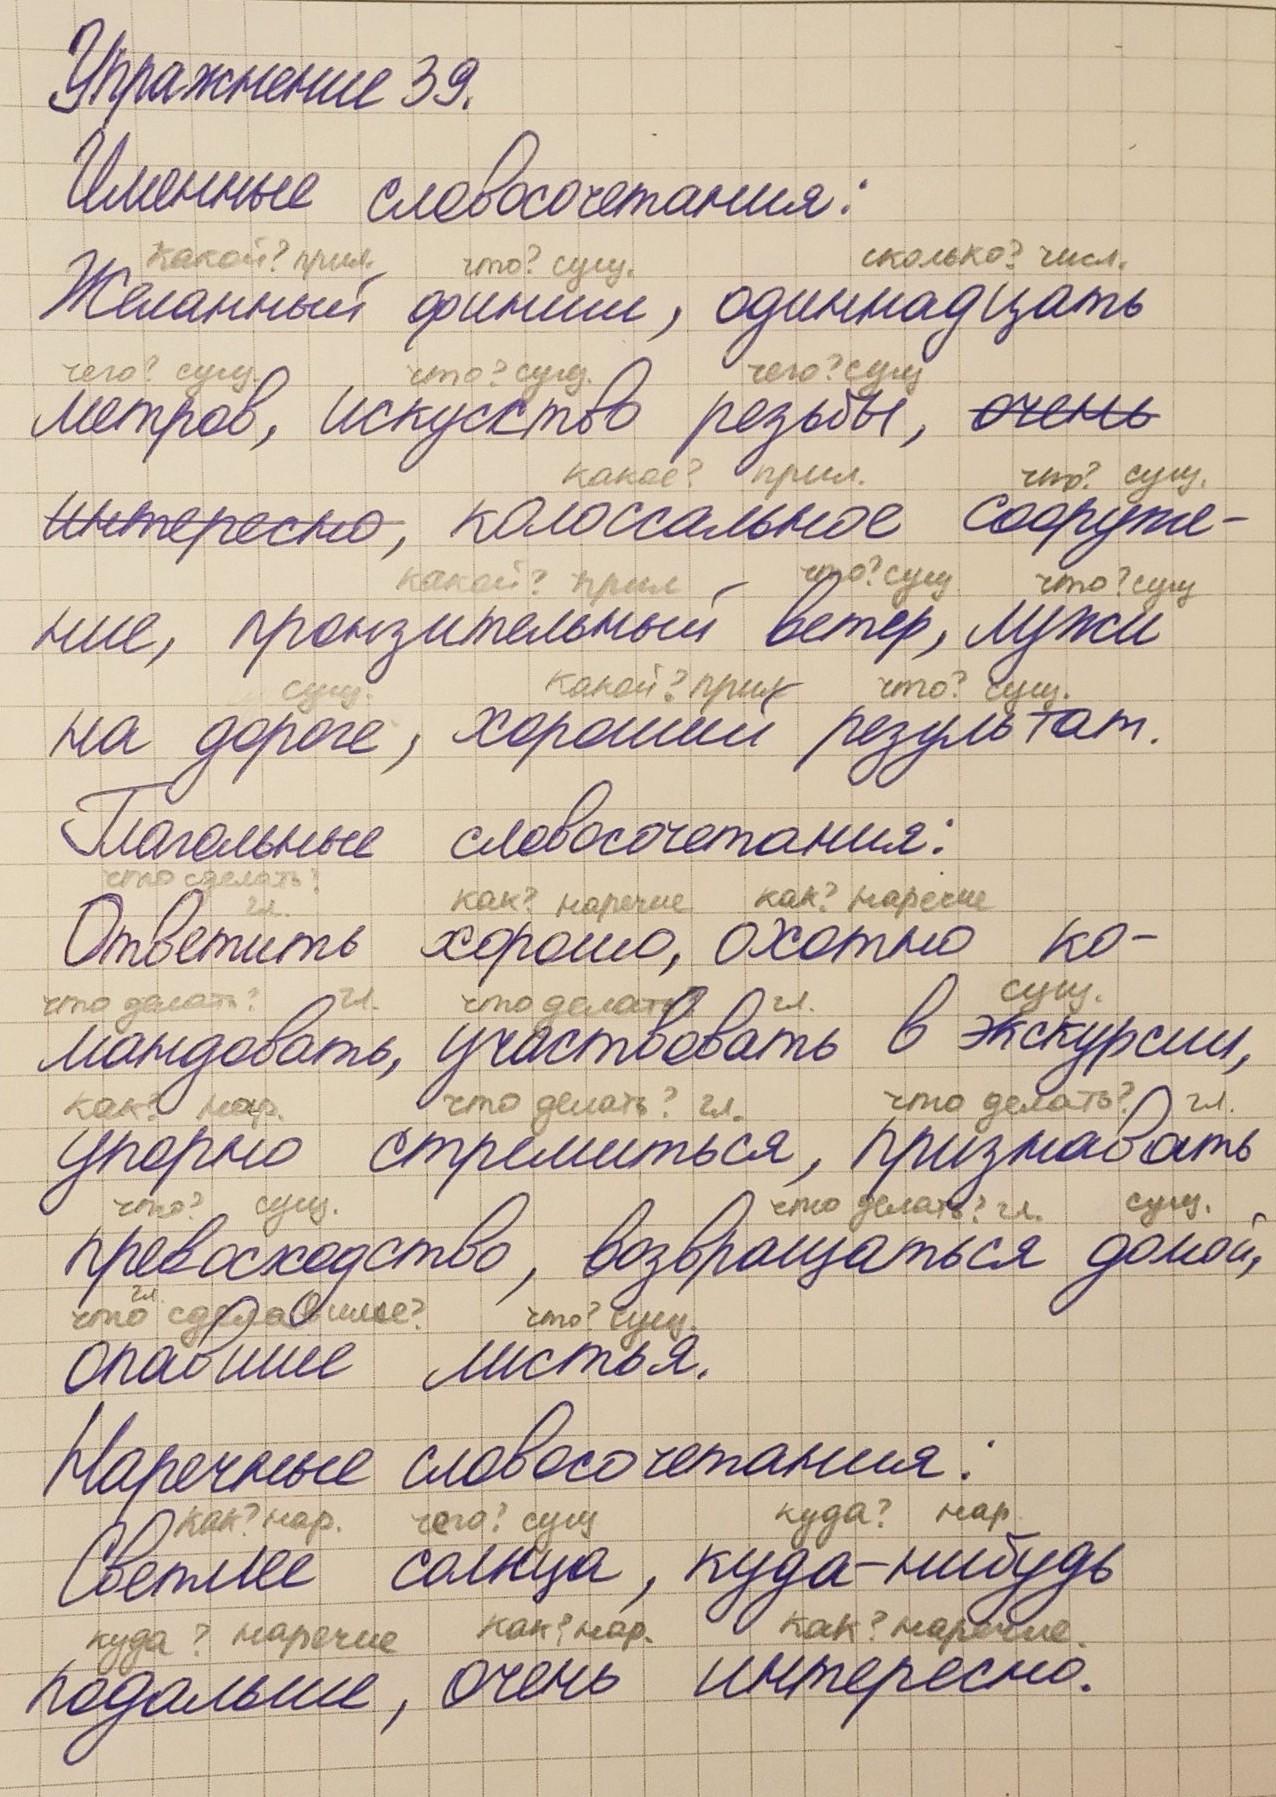 Упражнение 39.
Именные словосочетания:
какой? прил. что? сущ. сколько? числ.
Желанный финиш, одиннадцать
чего? сущ. что? сущ. чего? сущ
метров, искусство резьбы, очень
какое? прил. что? сущ.
интересно, колоссальное сооруже-
какой? прил что? сущ что? сущ
ние, пронзительный ветер, лужи
сущ. какой? прил что? сущ.
на дороге, хороший результат.
Глагольные словосочетания:
что сделать?
гл. как? наречие как? наречие
Ответить хорошо, охотно ко-
что делать? гл. что делать? гл. сущ.
мандовать, участвовать в экскурсии,
как? нар. что делать? гл. что делать? гл.
упорно стремиться, признавать
что? сущ. что делать? гл. сущ.
превосходство, возвращаться домой,
гл.
что сделавшие? что? сущ.
опавшие листья.
Наречные словосочетания:
как? нар. чего? сущ куда? нар
Светлее солнца, куда-нибудь
куда? наречие как? нар. как? наречие.
подальше, очень интересно.